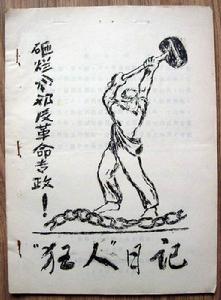 砸烂反革命专政!
"狂人"日记